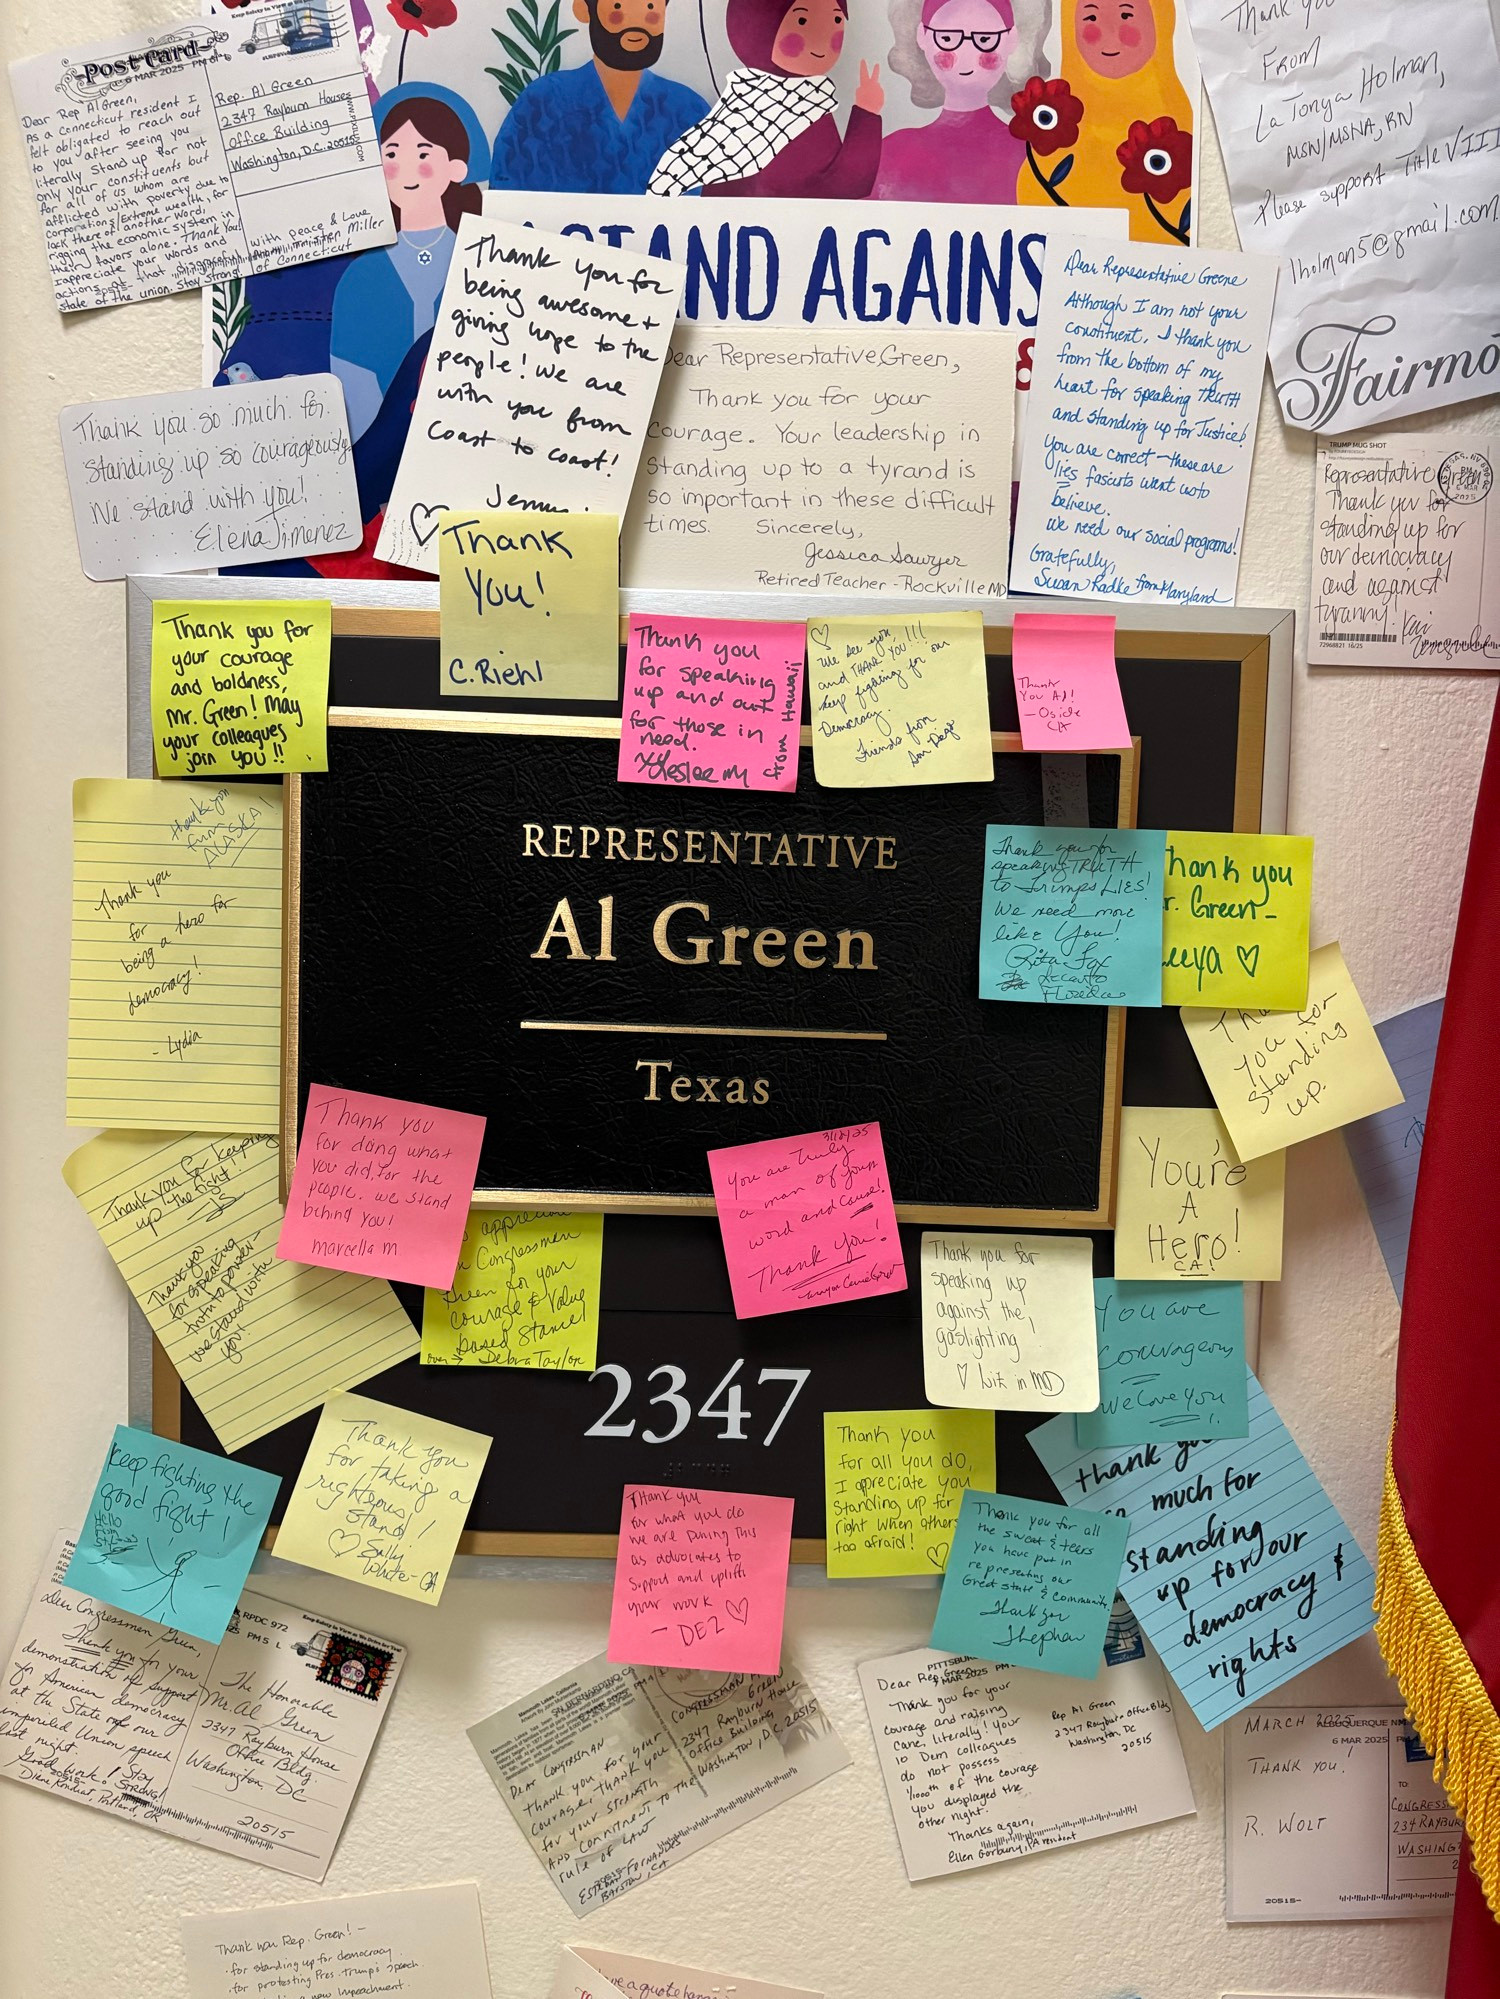 Post Card
6 MAR 2025 PM
Dear Rep Al Green,
As a Connecticut resident I
felt obligated to reach out
to you after seeing you
literally stand up for not
only your constituents but
for all of us whom are
afflicted with poverty due to
corporations/Extreme wealth, for
lack there of another word,
rigging the economic system in
their favors alone. Thank You!
I appreciate your words and
actions
state of the union. Stay strong!
Rep. Al Green
2347 Rayburn House
Office Building
Washington, D.C. 20515
with peace & Love
Miller
of Connecticut
Thank you
From
LaTonya Holman,
MSN/MSNA, RN
Please support Title VIII
lholman5@gmail.com
Fairmo
STAND AGAINS
Thank you for
being awesome +
giving hope to the
people! We are
with you from
coast to coast!
Dear Representative Green,
Thank you for your
courage. Your leadership in
standing up to a tyrand is
so important in these difficult
times. Sincerely,
Jessica Sawyer
Retired Teacher - Rockville MD
Dear Representative Greene
Although I am not your
constituent, I thank you
from the bottom of my
heart for speaking TRUTH
and standing up for Justice!
You are correct - these are
lies fascists want us to
believe.
We need our social programs!
Gratefully,
Susan Radke from Maryland
Thank you so much for
standing up so courageously.
We stand with you!
Elena Jimenez
TRUMP MUG SHOT
Representative Green
Thank you for
standing up for
our democracy
and against
tyranny!
72968821 16/25
Thank
You!
C. Riehl
Thank you for
your courage
and boldness,
Mr. Green! May
your colleagues
join you!!
Thank you
for speaking
up and out
for those in
need.
Leslee M
from Hawaii
We see you
and THANK YOU!!!!
Keep fighting for our
Democracy.
Friends from
San Diego
Thank
You Al!
- Oside
CA
REPRESENTATIVE
Al Green
Texas
2347
thank you
from
ALASKA!
Thank you
for
being a hero for
democracy!
- Lydia
Thank you for
speaking TRUTH
to Trumps LIES!
We need more
like You!
Rita Fox
Florida
hank you
r. Green -
eeya
you for
standing
up.
Thank you for keeping
up the fight!
Thank you
for speaking
truth to power -
we stand with
you!
Thank you
for doing what
you did, for the
people. We stand
behind you!
Marcella M
appreciate
Congressman
Green for your
courage & value
based stance!
over → Debra Taylor
3/12/25
You are truly
a man of your
word and cause!
Thank You!
Thank you for
speaking up
against the
gaslighting!
Liz in MD
You're
A
Hero!
CA!
You are
Courageous
We love you!
Keep fighting the
good fight!
Thank you
for taking a
righteous
stand!
Sally
White - CA
Thank you
for what you do
we are
as advocates to
support and uplift
your work
- DEZ
Thank you
for all you do,
I appreciate you
standing up for
right when others
too afraid!
Thank you for all
the sweat & tears
you have put in
representing our
Great state & community.
Thank you
Stephan
thank you
so much for
standing
up for our
democracy &
rights
Dear Congressman Green,
Thank you for your
demonstration of support
for American democracy
at the State of our
imperiled Union speech
last night.
Good work! Stay
Strong!
RPDC 972
The Honorable
Mr. Al Green
2347 Rayburn House
Office Bldg.
Washington, DC
20515
SAN BERNARDINO CA
Dear Congressman
Thank you for your
courage, thank you
for your strength
and commitment to the
rule of law
Esteban Fernandes
Barstow, CA
Congressman Al Green
2347 Rayburn House
Office Building
Washington, D.C. 20515
PITTSBURGH
MAR 2025 PM
Dear Rep. Green,
Thank you for your
courage and raising
cane, literally! Your
10 Dem colleagues
do not possess
1/1000th of the courage
you displayed the
other night.
Thanks again,
Ellen Gorbury, PA resident
Rep Al Green
2347 Rayburn Office Bldg
Washington, DC
20515
MARCH 2025
ALBUQUERQUE NM
6 MAR 2025 PM
THANK YOU!
R. WOLT
TO:
CONGRESS
234 RAYBUR
WASHING
20515-
Thank you Rep. Green! -
· for standing up for democracy
· for protesting Pres. Trump's speech
new impeachment